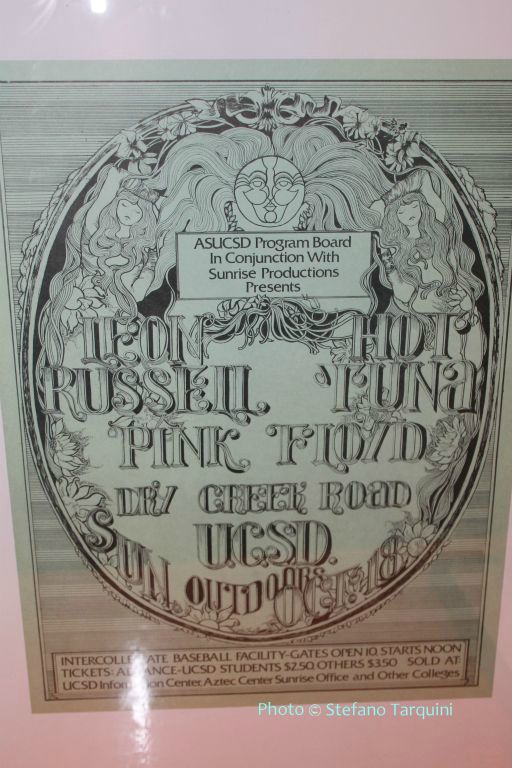 ASUCSD Program Board
In Conjunction With
Sunrise Productions
Presents
LEON HOT
RUSSELL TUNA
PINK FLOYD
DRY CREEK ROAD
UCSD.
SUN. OUTDOORS OCT. 18
INTERCOLLEGIATE BASEBALL FACILITY-GATES OPEN 10, STARTS NOON
TICKETS: ADVANCE-UCSD STUDENTS $2.50, OTHERS $3.50 SOLD AT:
UCSD Information Center, Aztec Center Sunrise Office and Other Colleges
Photo © Stefano Tarquini